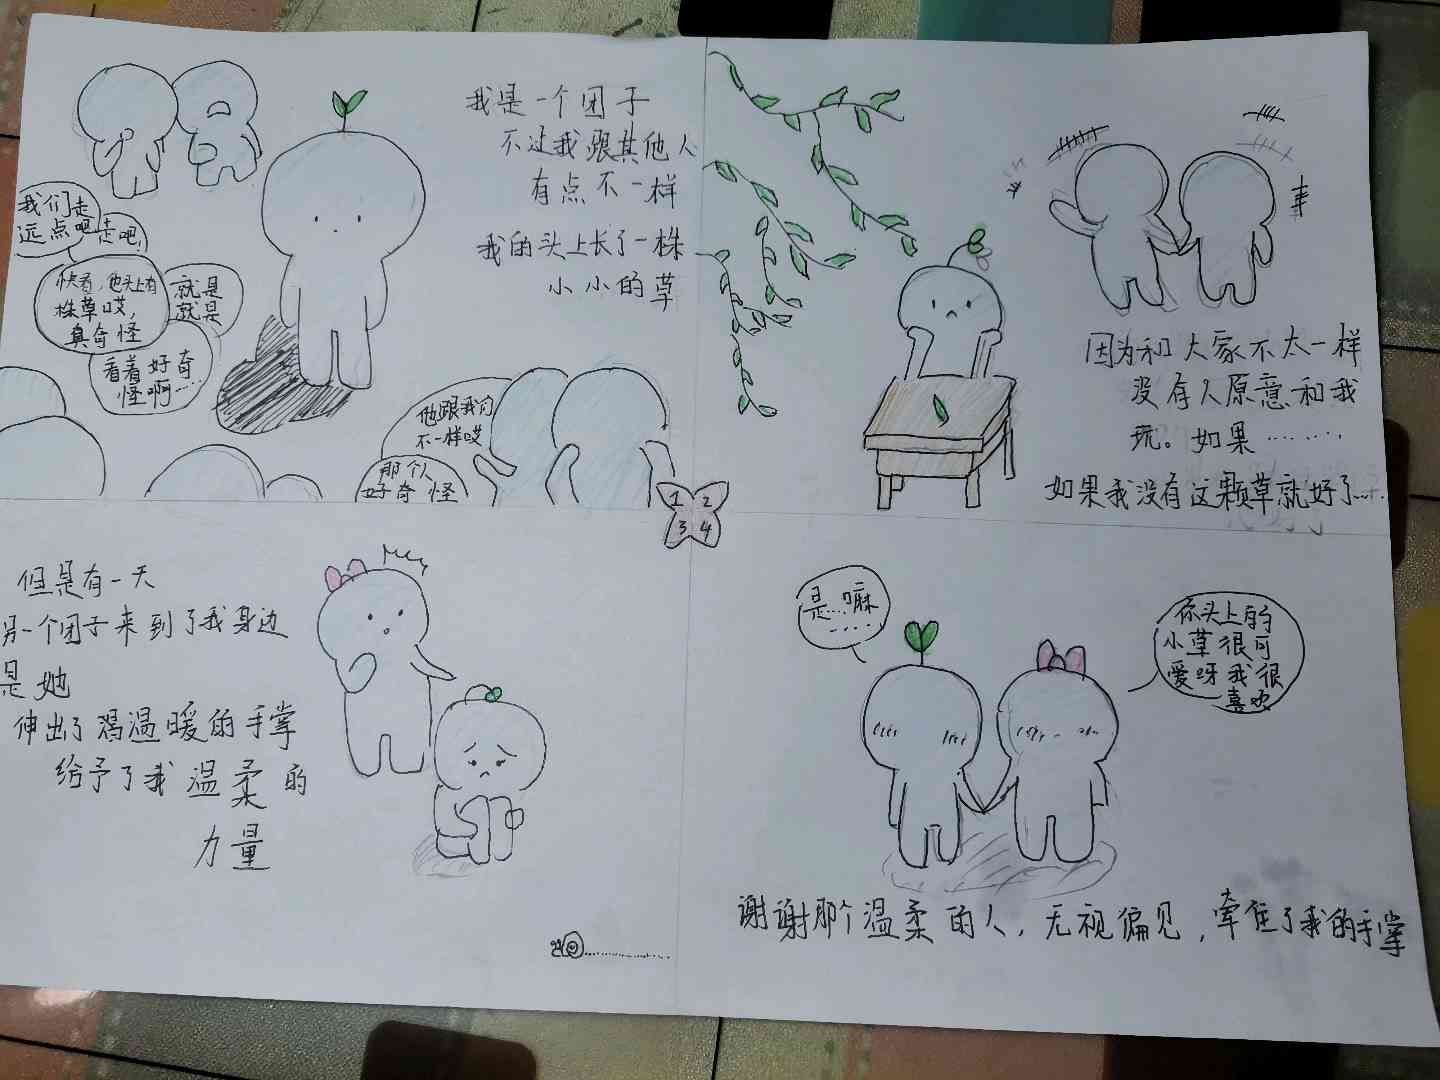 我是一个团子
不过我跟其他人
有点不一样
我的头上长了一株
小小的草
我们走
远点吧
走吧!
快看,他头上有
株草哎,
真奇怪
就是
就是
看着好奇
怪啊……
他跟我们
不一样哎
那个人
好奇怪
因为和大家不太一样
没有人原意和我
玩。如果………
如果我没有这颗草就好了……
1 2
3 4
但是有一天
另一个团子来到了我身边
是她
伸出了温暖的手掌
给予了我温柔的
力量
是…嘛
……
你头上的
小草很可
爱呀我很
喜欢
谢谢那个温柔的人,无视偏见,牵住了我的手掌